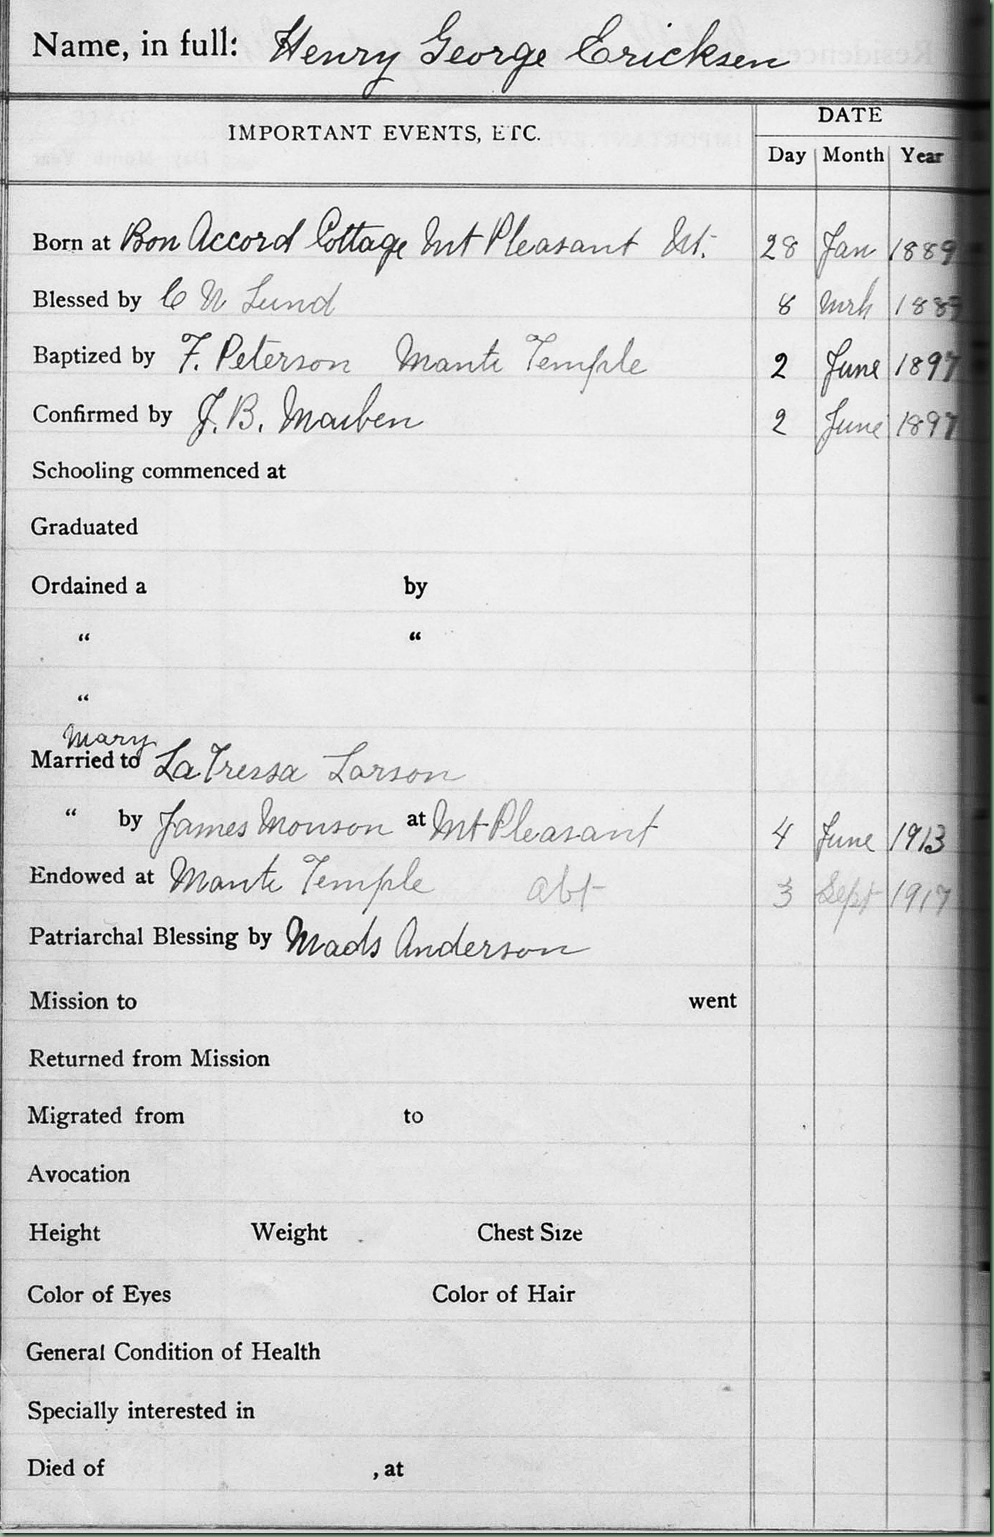 Name, in full: Henry George Ericksen
IMPORTANT EVENTS, ETC. DATE
Day Month Year
Born at Bon Accord Cottage Mt Pleasant Ut. 28 Jan 1889
Blessed by C N Lund 8 Mrh 1889
Baptized by F. Peterson Manti Temple 2 June 1897
Confirmed by J. B. Maiben 2 June 1897
Schooling commenced at
Graduated
Ordained a by
" "
"
Mary
Married to LaTressa Larson
" by James Monson at Mt Pleasant 4 June 1913
Endowed at Manti Temple abt 3 Sept 1917
Patriarchal Blessing by Mads Anderson
Mission to went
Returned from Mission
Migrated from to
Avocation
Height Weight Chest Size
Color of Eyes Color of Hair
General Condition of Health
Specially interested in
Died of , at